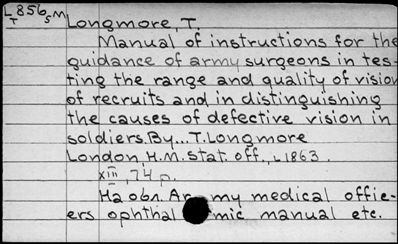 L856sM
T
Longmore, T.
Manual of instructions for the
guidance of army surgeons in tes-
ting the range and quality of vision
of recruits and in distinguishing
the causes of defective vision in
soldiers. By... T. Longmore
London, H.M. stat. off., 1863.
XIII, 74 p.
На обл. Ar my medical offic-
ers ophthal mic manual etc.